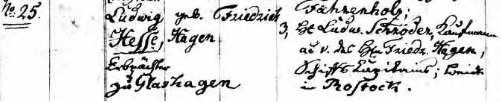 No 25.
Ludwig geb. Friedrich Fahrenholz;
Hesse, Hagen 3, Hr Ludw. Schröder, Kaufmann
Erbpächter au v. des Hrn Friedr. Hagen,
zu Glashagen Schiffs Capitains; beide
in Rostock.